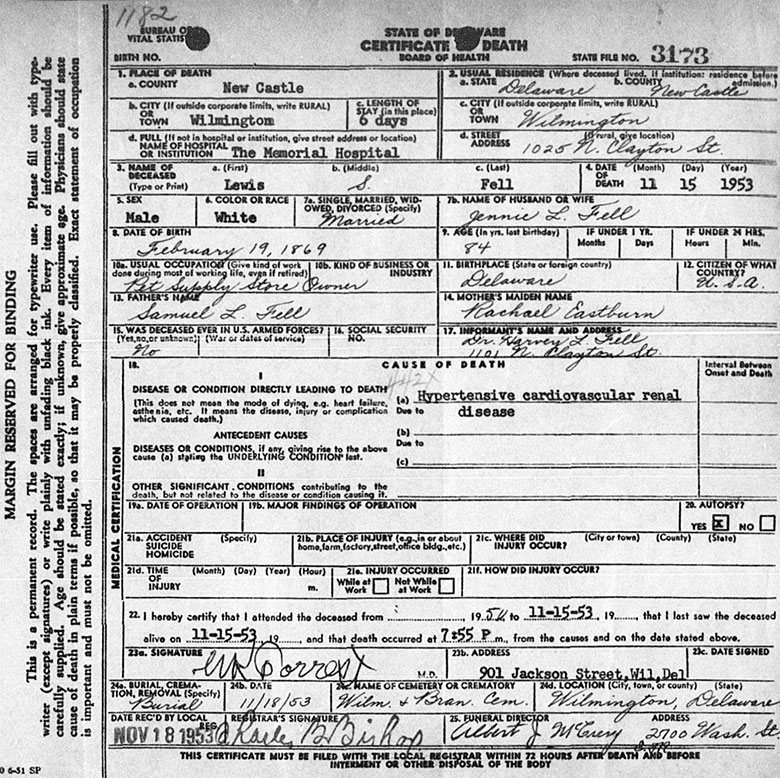 1182
BUREAU OF
VITAL STATIS
STATE OF DELAWARE
CERTIFICATE OF DEATH
BOARD OF HEALTH
BIRTH NO.
STATE FILE NO. 3173
1. PLACE OF DEATH
a. COUNTY New Castle
2. USUAL RESIDENCE (Where deceased lived, if institution: residence before admission.)
a. STATE Delaware b. COUNTY New Castle
b. CITY (If outside corporate limits, write RURAL)
OR
TOWN Wilmingtom
c. LENGTH OF
STAY (in this place)
6 days
c. CITY (If outside corporate limits, write RURAL)
OR
TOWN Wilmington
d. FULL (If not in hospital or institution, give street address or location)
NAME OF HOSPITAL
OR INSTITUTION The Memorial Hospital
d. STREET (If rural, give location)
ADDRESS 1025 N. Clayton St.
3. NAME OF
DECEASED
(Type or Print)
a. (First) Lewis
b. (Middle) S.
c. (Last) Fell
4. DATE (Month) (Day) (Year)
OF
DEATH 11 15 1953
5. SEX
Male
6. COLOR OR RACE
White
7a. SINGLE, MARRIED, WID-
OWED, DIVORCED (Specify)
Married
7b. NAME OF HUSBAND OR WIFE
Jennie L. Fell
8. DATE OF BIRTH
February 19, 1869
9. AGE (In yrs. last birthday)
84
IF UNDER 1 YR.
Months Days
IF UNDER 24 HRS.
Hours Min.
10a. USUAL OCCUPATION (Give kind of work
done during most of working life, even if retired)
10b. KIND OF BUSINESS OR
INDUSTRY
Pet Supply Store Owner
11. BIRTHPLACE (State or foreign country)
Delaware
12. CITIZEN OF WHAT
COUNTRY?
U.S.A.
13. FATHER'S NAME
Samuel L. Fell
14. MOTHER'S MAIDEN NAME
Rachael Eastburn
15. WAS DECEASED EVER IN U.S. ARMED FORCES?
(Yes, no, or unknown) (War or dates of service)
No
16. SOCIAL SECURITY
NO.
17. INFORMANT'S NAME AND ADDRESS
Dr. Harvey L. Fell
1101 N. Clayton St.
MEDICAL CERTIFICATION
18. CAUSE OF DEATH
Interval Between
Onset and Death
I
442X
DISEASE OR CONDITION DIRECTLY LEADING TO DEATH
(This does not mean the mode of dying, e.g. heart failure,
asthenia, etc. It means the disease, injury or complication
which caused death.)
(a) Hypertensive cardiovascular renal
Due to disease
ANTECEDENT CAUSES
DISEASES OR CONDITIONS, if any, giving rise to the above
cause (a) stating the UNDERLYING CONDITION last.
(b)
Due to
(c)
II
OTHER SIGNIFICANT CONDITIONS contributing to the
death, but not related to the disease or condition causing it.
19a. DATE OF OPERATION
19b. MAJOR FINDINGS OF OPERATION
20. AUTOPSY?
YES X NO
21a. ACCIDENT (Specify)
SUICIDE
HOMICIDE
21b. PLACE OF INJURY (e.g., in or about
home, farm, factory, street, office bldg., etc.)
21c. WHERE DID (City or town) (County) (State)
INJURY OCCUR?
21d. TIME (Month) (Day) (Year) (Hour)
OF
INJURY m.
21e. INJURY OCCURRED
While at Work Not While at Work
21f. HOW DID INJURY OCCUR?
22. I hereby certify that I attended the deceased from 19 to 11-15-53, 19, that I last saw the deceased
alive on 11-15-53, 19, and that death occurred at 7:55 P m., from the causes and on the date stated above.
23a. SIGNATURE
M.D.
23b. ADDRESS
901 Jackson Street, Wil, Del
23c. DATE SIGNED
24a. BURIAL, CREMA-
TION, REMOVAL (Specify)
Burial
24b. DATE
11/18/53
24c. NAME OF CEMETERY OR CREMATORY
Wilm. & Bran. Cem.
24d. LOCATION (City, town, or county) (State)
Wilmington, Delaware
DATE REC'D BY LOCAL
REG.
NOV 18 1953
REGISTRAR'S SIGNATURE
Charles B. Bishop
25. FUNERAL DIRECTOR ADDRESS
Albert J McCrery 2700 Wash. St.
THIS CERTIFICATE MUST BE FILED WITH THE LOCAL REGISTRAR WITHIN 72 HOURS AFTER DEATH AND BEFORE
INTERMENT OR OTHER DISPOSAL OF THE BODY
MARGIN RESERVED FOR BINDING
This is a permanent record. The spaces are arranged for typewriter use. Please fill out with type-
writer (except signatures) or write plainly with unfading black ink. Every item of information should be
carefully supplied. Age should be stated exactly; if unknown, give approximate age. Physicians should state
cause of death in plain terms if possible, so that it may be properly classified. Exact statement of occupation
is important and must not be omitted.
0 6-51 SP